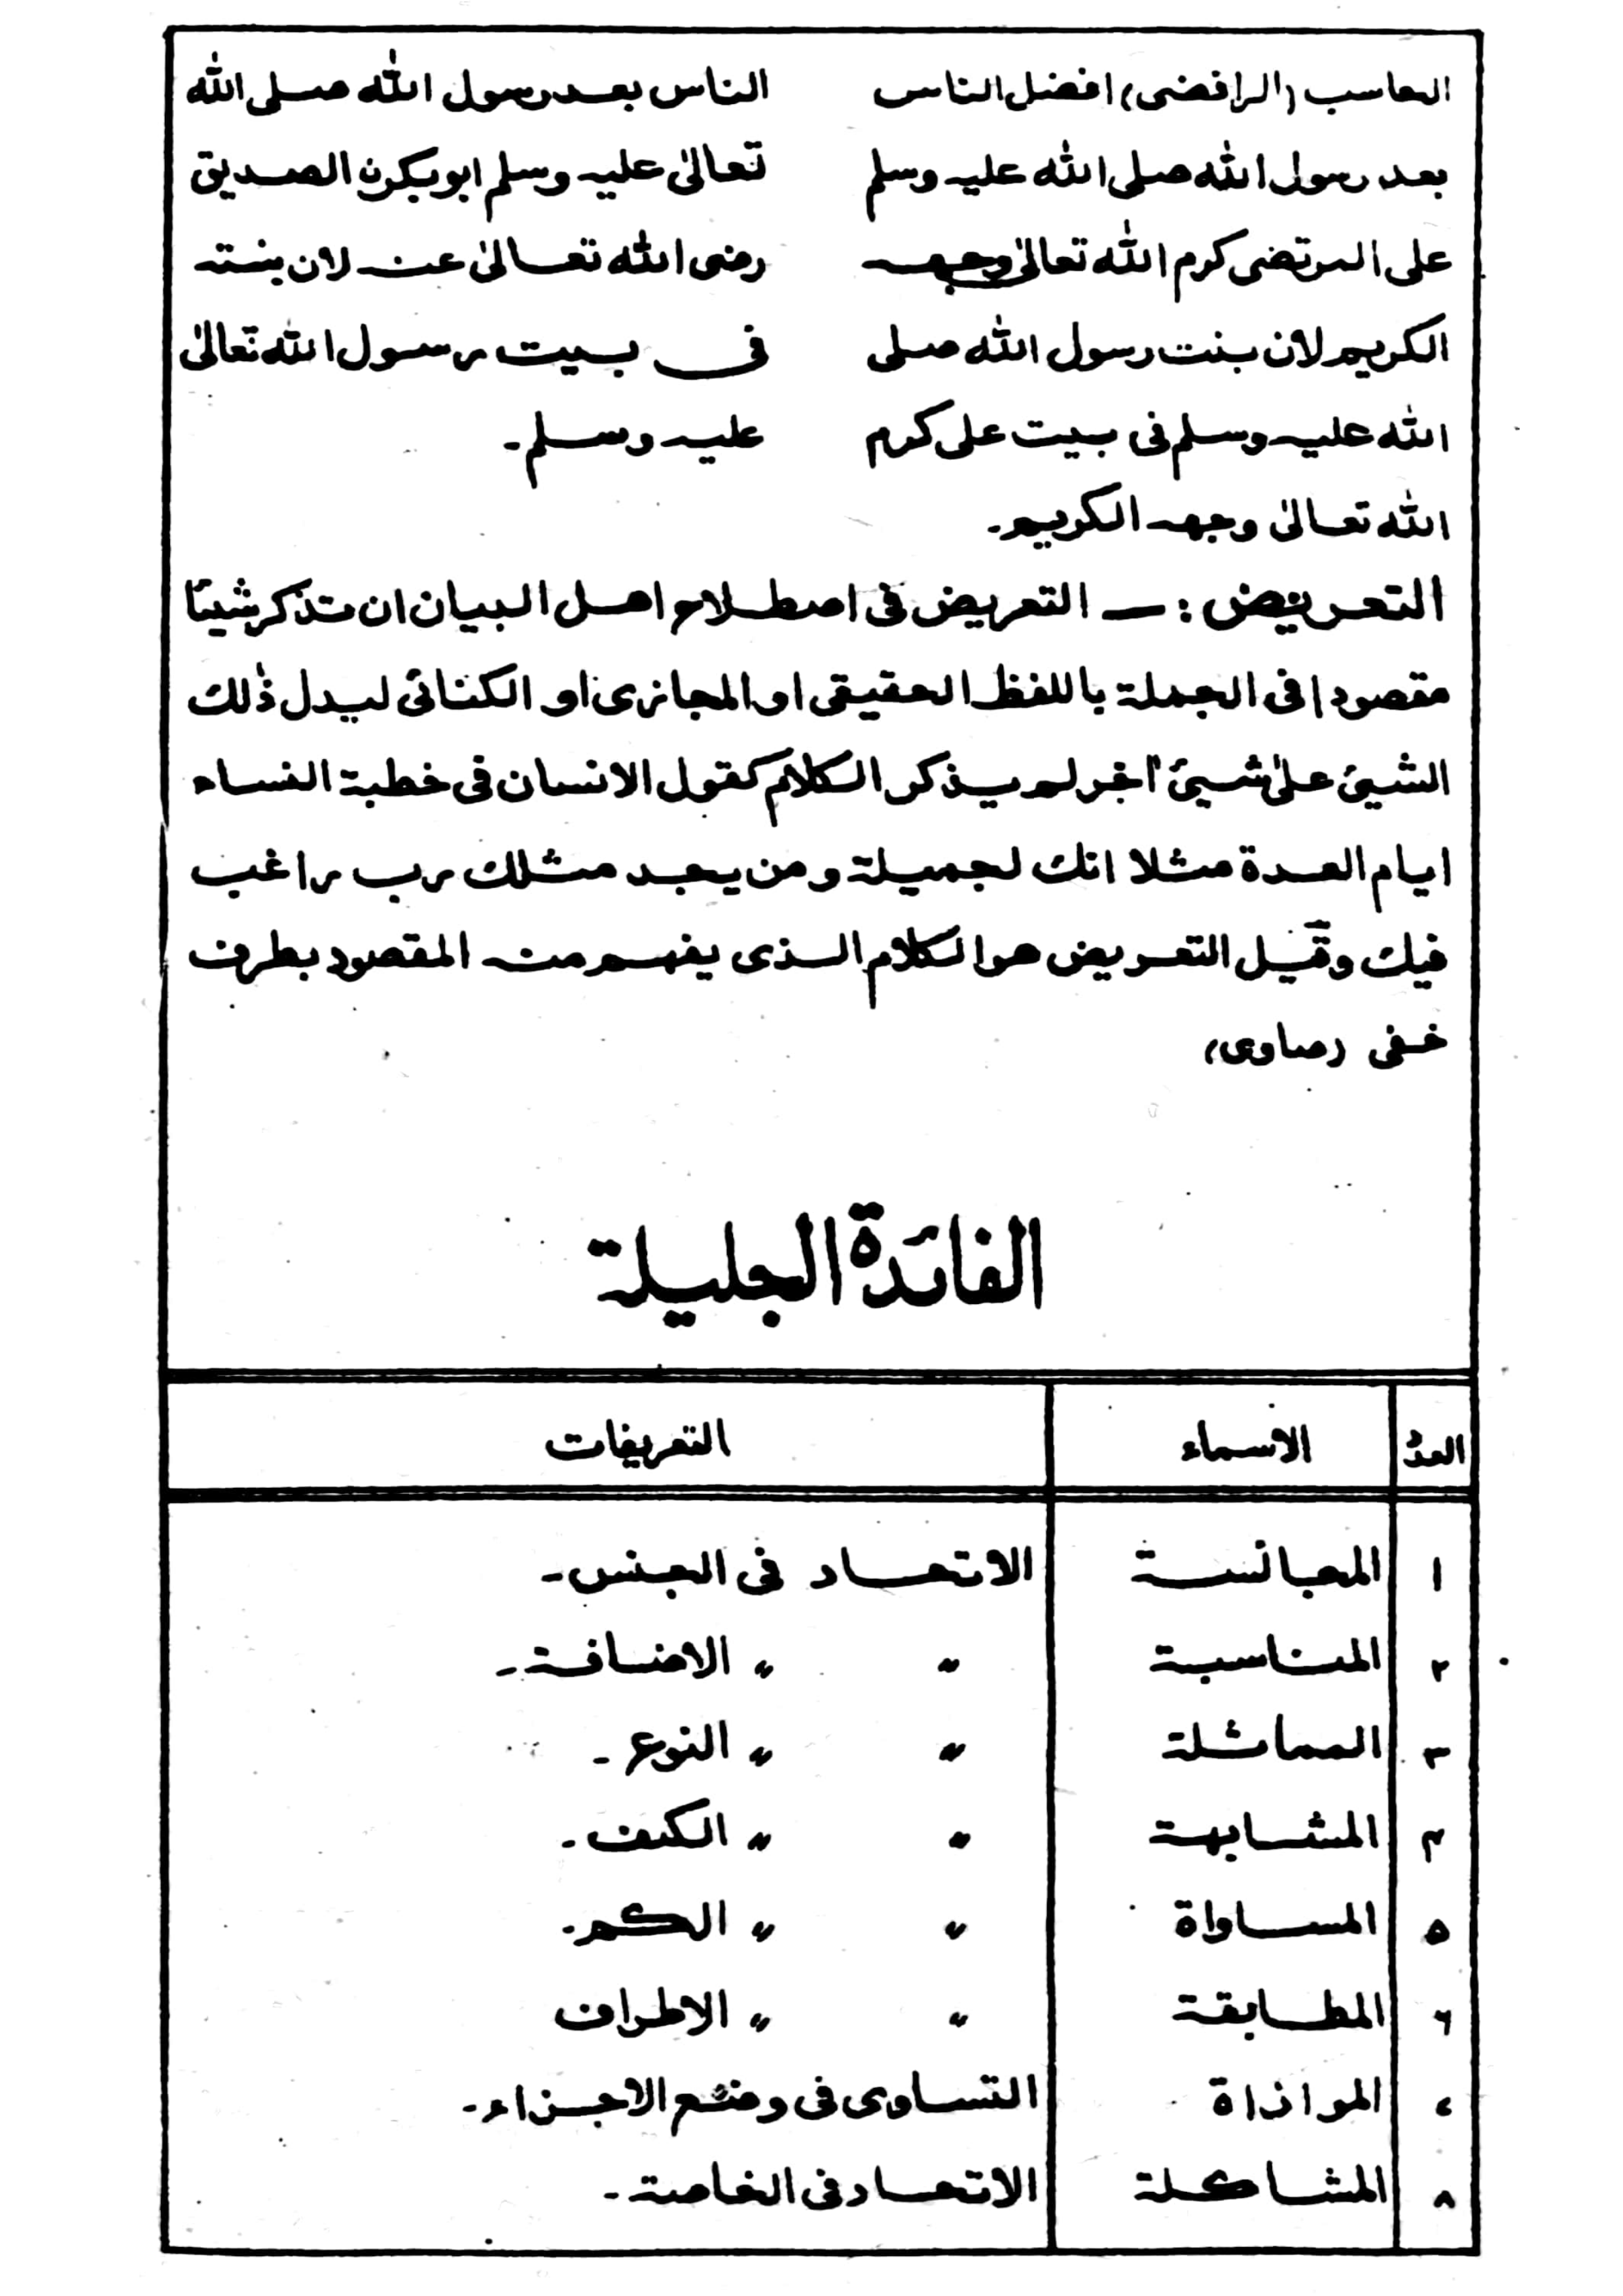 المحاسب (الرافضى) افضل الناس
بعد رسول الله صلى الله عليه وسلم
على المرتضى كرم الله تعالىٰ وجهه
الكريم لان بنت رسول الله صلى
الله عليه وسلم فى بيت على كرم
الله تعالىٰ وجهه الكريم۔
الناس بعد رسول الله صلى الله
تعالىٰ عليه وسلم ابوبكرن الصديق
رضى الله تعالىٰ عنه لان بنته
فى بيت رسول الله تعالىٰ
عليه وسلم۔
التعريض :ــ التعريض فى اصطلاح اهل البيان ان تذكر شيئا
مقصودا فى الجملة باللفظ الحقيقى او المجازى او الكنائى ليدل ذٰلك
الشيئ علىٰ شيئ اٰخر لم يذكر الكلام كقول الانسان فى خطبة النساء
ايام العدة مثلا انك لجميلة ومن يجد مثلك رب راغب
فيك وقيل التعريض هو الكلام الذى يفهم منه المقصود بطرف
خفى (صاوى)
الفائدة الجليلة
العدد الاسماء التعريفات
۱ المجانسة الاتحاد فى الجنس۔
۲ المناسبة 〃 〃 الاضافة۔
۳ المماثلة 〃 〃 النوع۔
۴ المشابهة 〃 〃 الكيف۔
۵ المساواة 〃 〃 الكم۔
۶ المطابقة 〃 〃 الاطراف
۷ الموازاة التساوى فى وضع الاجزاء۔
۸ المشاكلة الاتحاد فى الخاصة۔